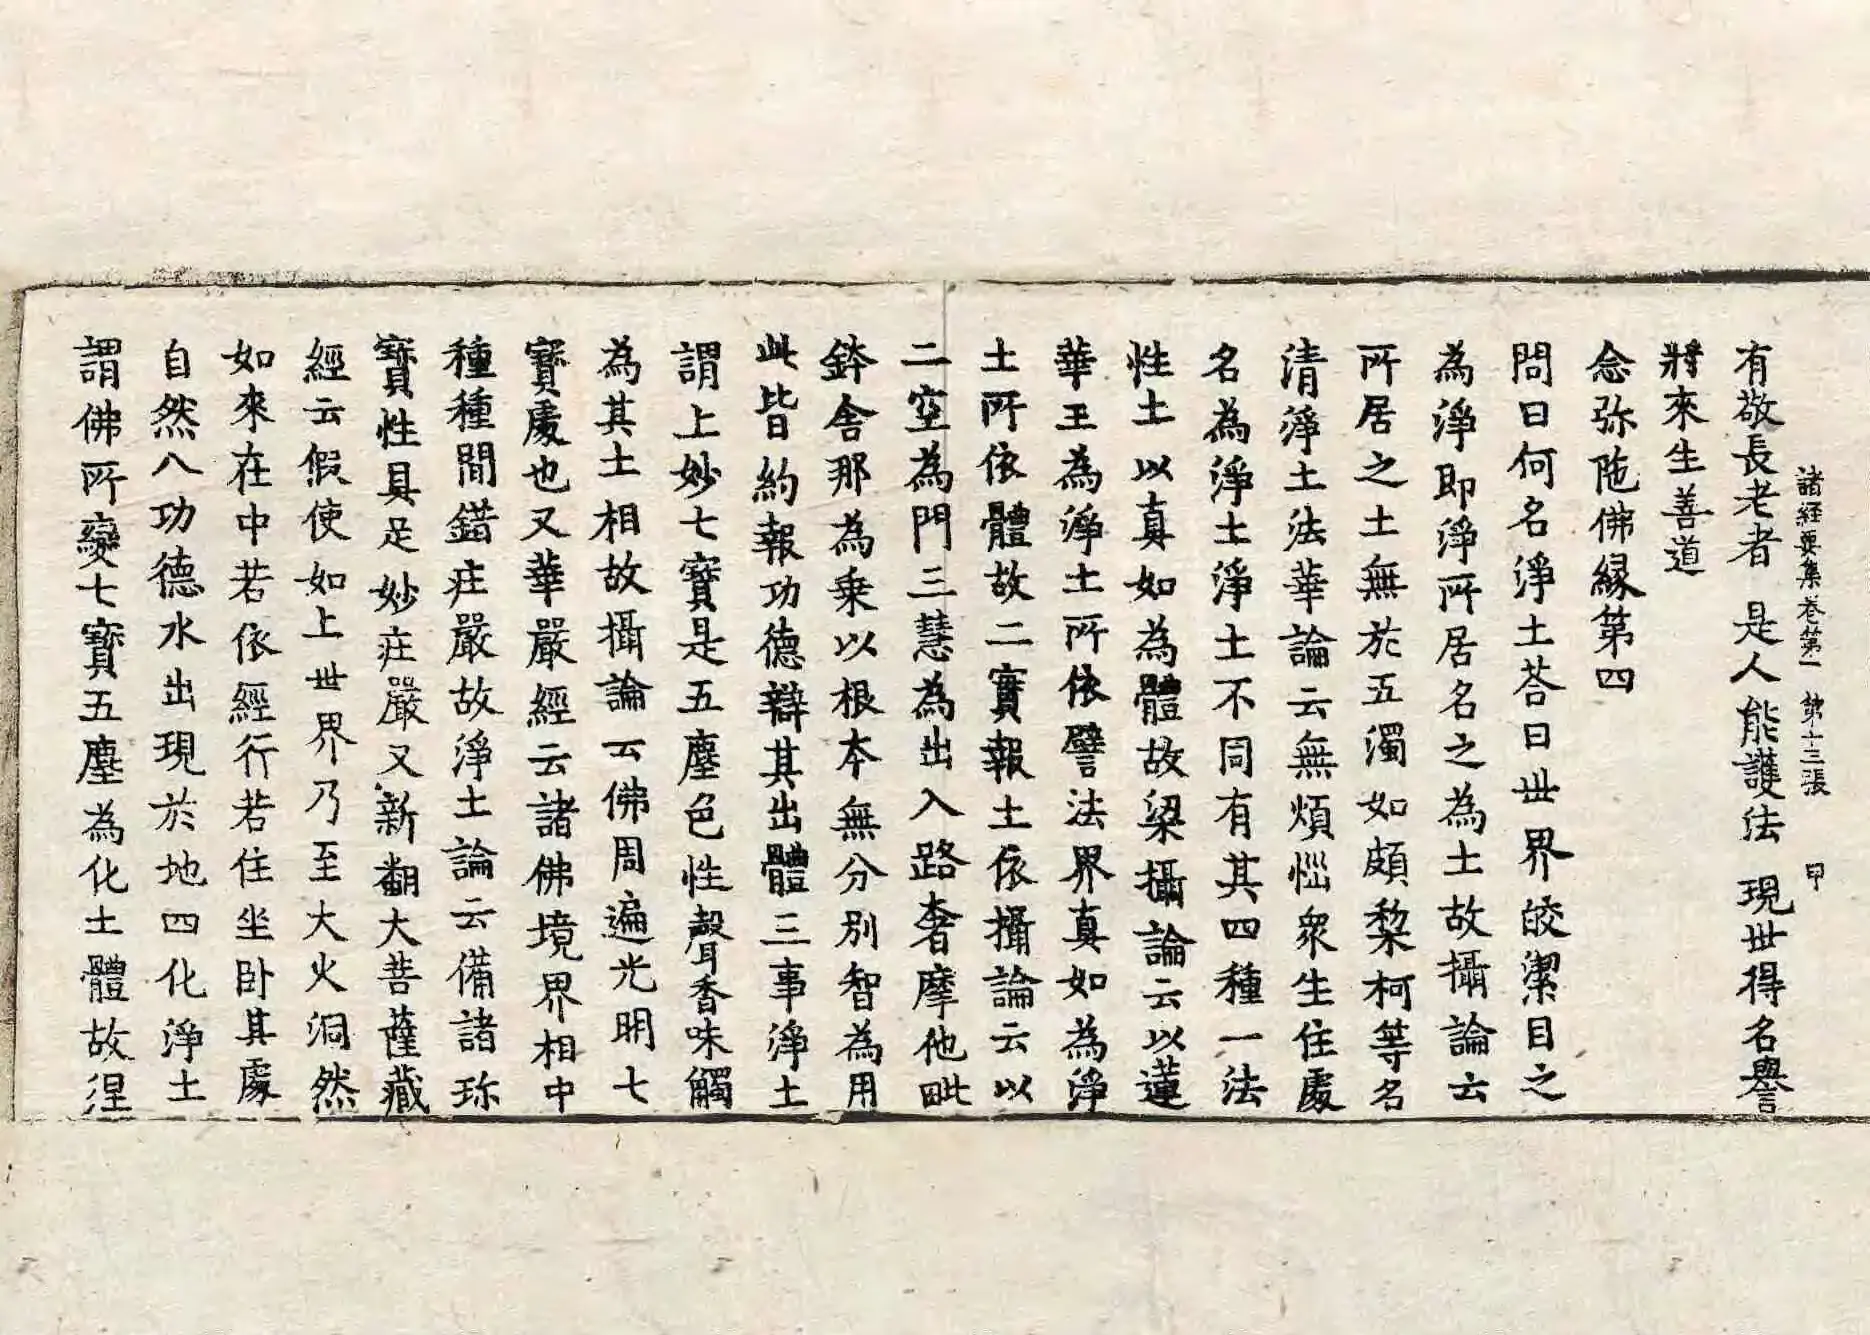 諸經要集卷第一 第十三張 甲
有敬長老者 是人能護法 現世得名譽
將來生善道
念弥陁佛緣第四
問曰何名淨土荅曰世界皎潔目之
為淨即淨所居名之為土故攝論云
所居之土無於五濁如頗棃柯等名
清淨土法華論云無煩惱衆生住處
名為淨土淨土不同有其四種一法
性土以真如為體故梁攝論云以蓮
華王為淨土所依譬法界真如為淨
土所依體故二實報土依攝論云以
二空為門三慧為出入路奢摩他毗
鉢舍那為乗以根本無分別智為用
此皆約報功德辯其出體三事淨土
謂上妙七寶是五塵色性聲香味觸
為其土相故攝論云佛周遍光明七
寶處也又華嚴經云諸佛境界相中
種種間錯庄嚴故淨土論云備諸珎
寶性具足妙庄嚴又新翻大菩薩藏
經云假使如上世界乃至大火洞然
如來在中若依經行若住坐卧其處
自然八功德水出現於地四化淨土
謂佛所變七寶五塵為化土體故涅